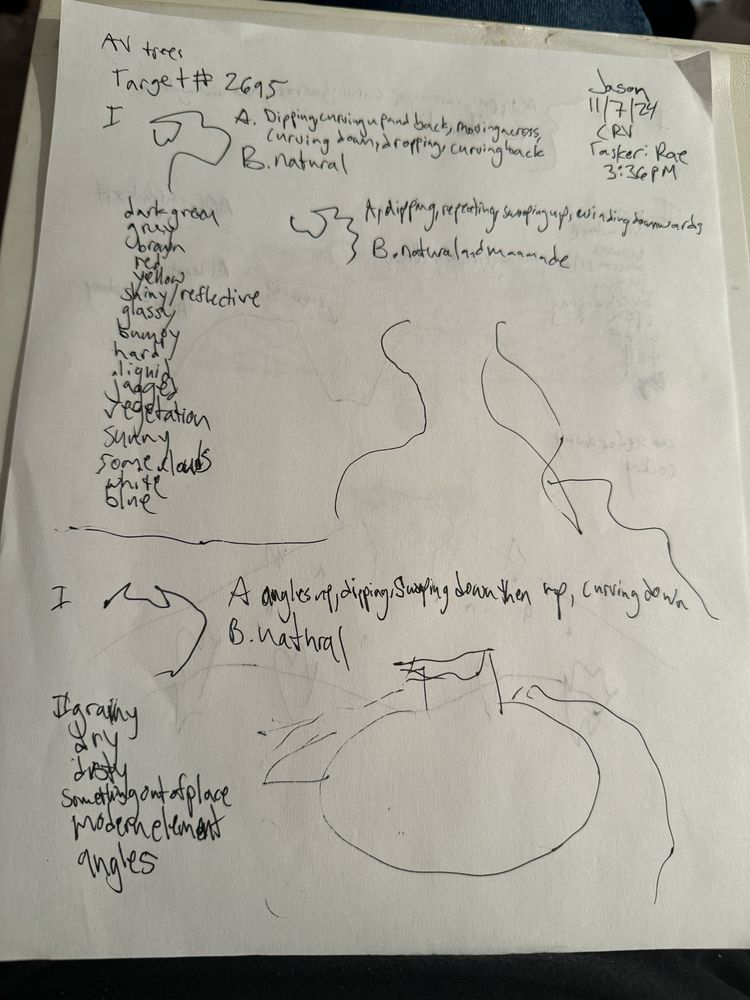 AV trees
Target# 2695
Jason
11/7/24
CRV
Tasker: Rae
3:36 PM
I
A. Dipping curving up and back, moving across,
curving down, dropping, curving back
B. natural
A, dipping, repeating, swooping up, winding downwards
B. natural and manmade
dark green
grey
brown
red
yellow
shiny/reflective
glassy
bumpy
hard
liquid
jagged
vegetation
sunny
some clouds
white
blue
I
A angles up, dipping, Swooping down then up, curving down
B. natural
II grainy
dry
dusty
something out of place
modern element
angles